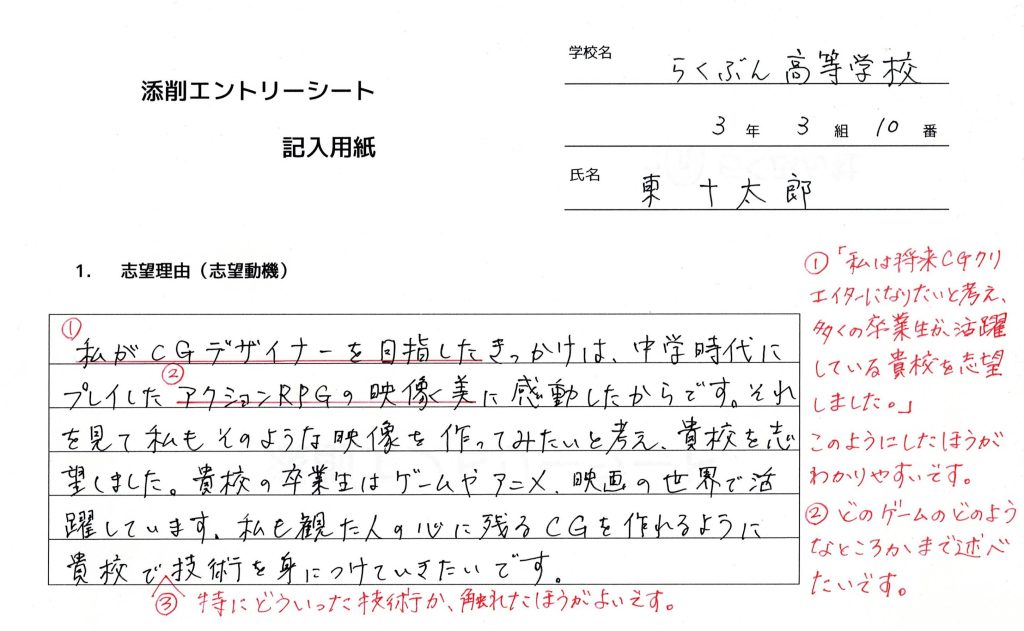 学校名 らくぶん高等学校
添削エントリーシート
記入用紙
3年3組10番
氏名 東十太郎
1. 志望理由（志望動機）
①
私がCGデザイナーを目指したきっかけは、中学時代に
②
プレイしたアクションRPGの映像美に感動したからです。それ
を見て私もそのような映像を作ってみたいと考え、貴校を志
望しました。貴校の卒業生はゲームやアニメ、映画の世界で活
躍しています。私も観た人の心に残るCGを作れるように
貴校で技術を身につけていきたいです。
③ 特にどういった技術か、触れたほうがよいです。
①「私は将来CGクリ
エイターになりたいと考え、
多くの卒業生が活躍
している貴校を志望
しました。」
このようにしたほうが
わかりやすいです。
② どのゲームのどのよう
なところかまで述べ
たいです。